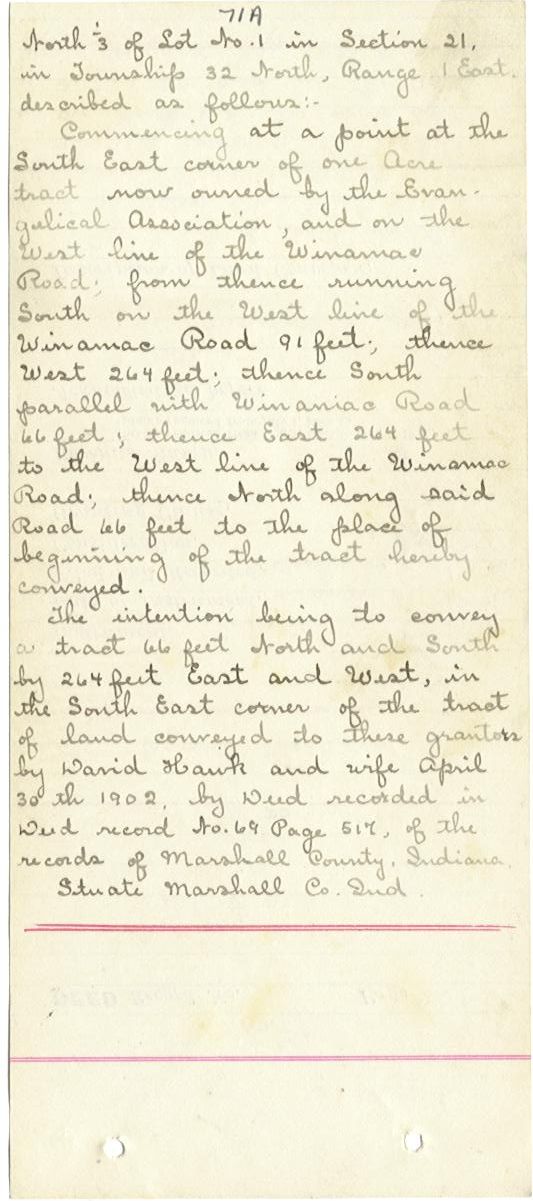 71A
North 1/3 of Lot No. 1 in Section 21,
in Township 32 North, Range 1 East.
described as follows:-
Commencing at a point at the
South East corner of one Acre
tract now owned by the Evan-
gelical Association, and on the
West line of the Winamac
Road; from thence running
South on the West line of the
Winamac Road 91 feet; thence
West 264 feet; thence South
parallel with Winamac Road
66 feet; thence East 264 feet
to the West line of the Winamac
Road; thence North along said
Road 66 feet to the place of
beginning of the tract hereby
conveyed.
The intention being to convey
a tract 66 feet North and South
by 264 feet East and West, in
the South East corner of the tract
of land conveyed to these grantors
by David Hawk and wife April
30th 1902, by Deed recorded in
Deed record No. 69 Page 517, of the
records of Marshall County, Indiana.
Stuate Marshall Co. Ind.